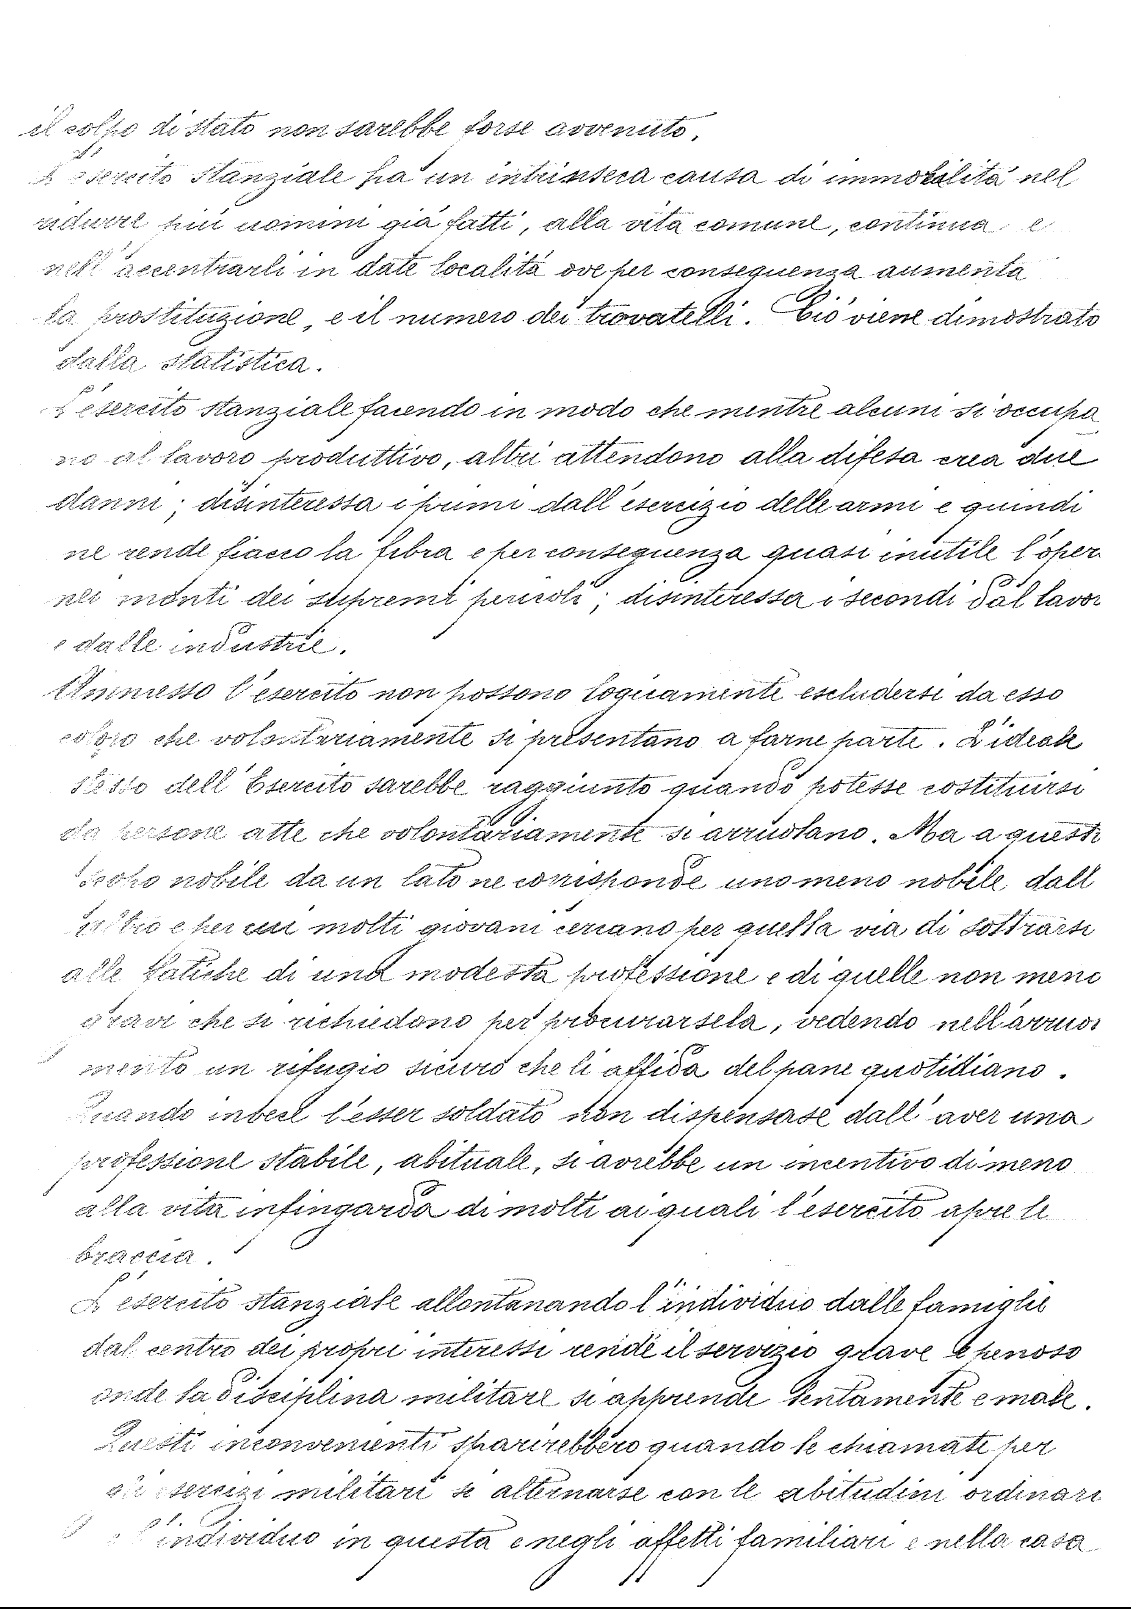 il colpo di stato non sarebbe forse avvenuto.
L'esercito stanziale ha un intrinseca causa di immoralità nel
ridurre più uomini già fatti, alla vita comune, continua e
nell'accentrarli in date località ove per conseguenza aumenta
la prostituzione, e il numero dei trovatelli. Ciò viene dimostrato
dalla statistica.
L'esercito stanziale facendo in modo che mentre alcuni si occupa
no al lavoro produttivo, altri attendono alla difesa crea due
danni; disinteressa i primi dall'esercizio delle armi e quindi
ne rende fiacco la fibra e per conseguenza quasi inutile l'oper
nei monti dei supremi pericoli; disinteressa i secondi dal lavor
e dalle industrie.
Ammesso l'esercito non possono logicamente escludersi da esso
coloro che volontariamente si presentano a farne parte. L'ideale
stesso dell'Esercito sarebbe raggiunto quando potesse costituirsi
da persone atte che volontariamente si arruolano. Ma a questo
scopo nobile da un lato ne corrisponde uno meno nobile dall
altro e per cui molti giovani cercano per quella via di sottrarsi
alle fatiche di una modesta professione e di quelle non meno
gravi che si richiedono per procurarsela, vedendo nell'arruol
mento un rifugio sicuro che li affida del pane quotidiano.
Quando invece l'esser soldato non dispensasse dall'aver una
professione stabile, abituale, si avrebbe un incentivo di meno
alla vita infingarda di molti ai quali l'esercito apre le
braccia.
L'esercito stanziale allontanando l'individuo dalle famiglie
dal centro dei propri interessi rende il servizio grave e penoso
onde la disciplina militare si apprende lentamente e male.
Questi inconvenienti sparirebbero quando le chiamate per
gli esercizi militari si alternasse con le abitudini ordinari
l'individuo in questa e negli affetti familiari e nella casa